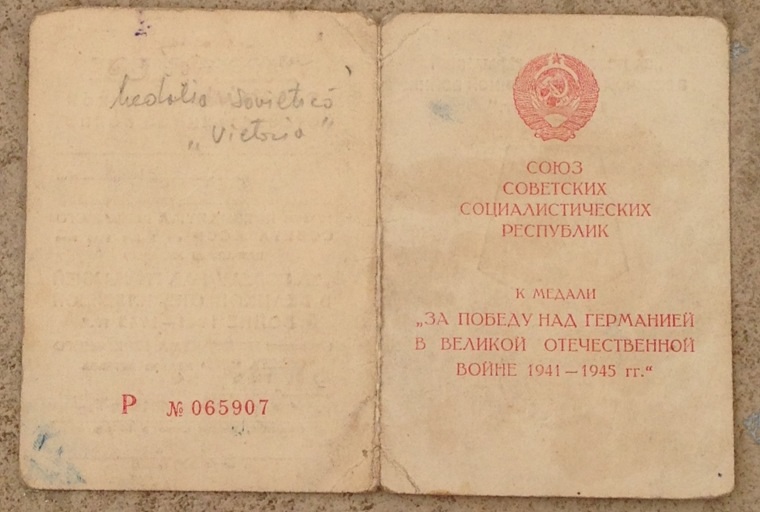 Medalia Sovietică
„Victoria"
Р № 065907
СОЮЗ
СОВЕТСКИХ
СОЦИАЛИСТИЧЕСКИХ
РЕСПУБЛИК
К МЕДАЛИ
„ЗА ПОБЕДУ НАД ГЕРМАНИЕЙ
В ВЕЛИКОЙ ОТЕЧЕСТВЕННОЙ
ВОЙНЕ 1941—1945 гг.“